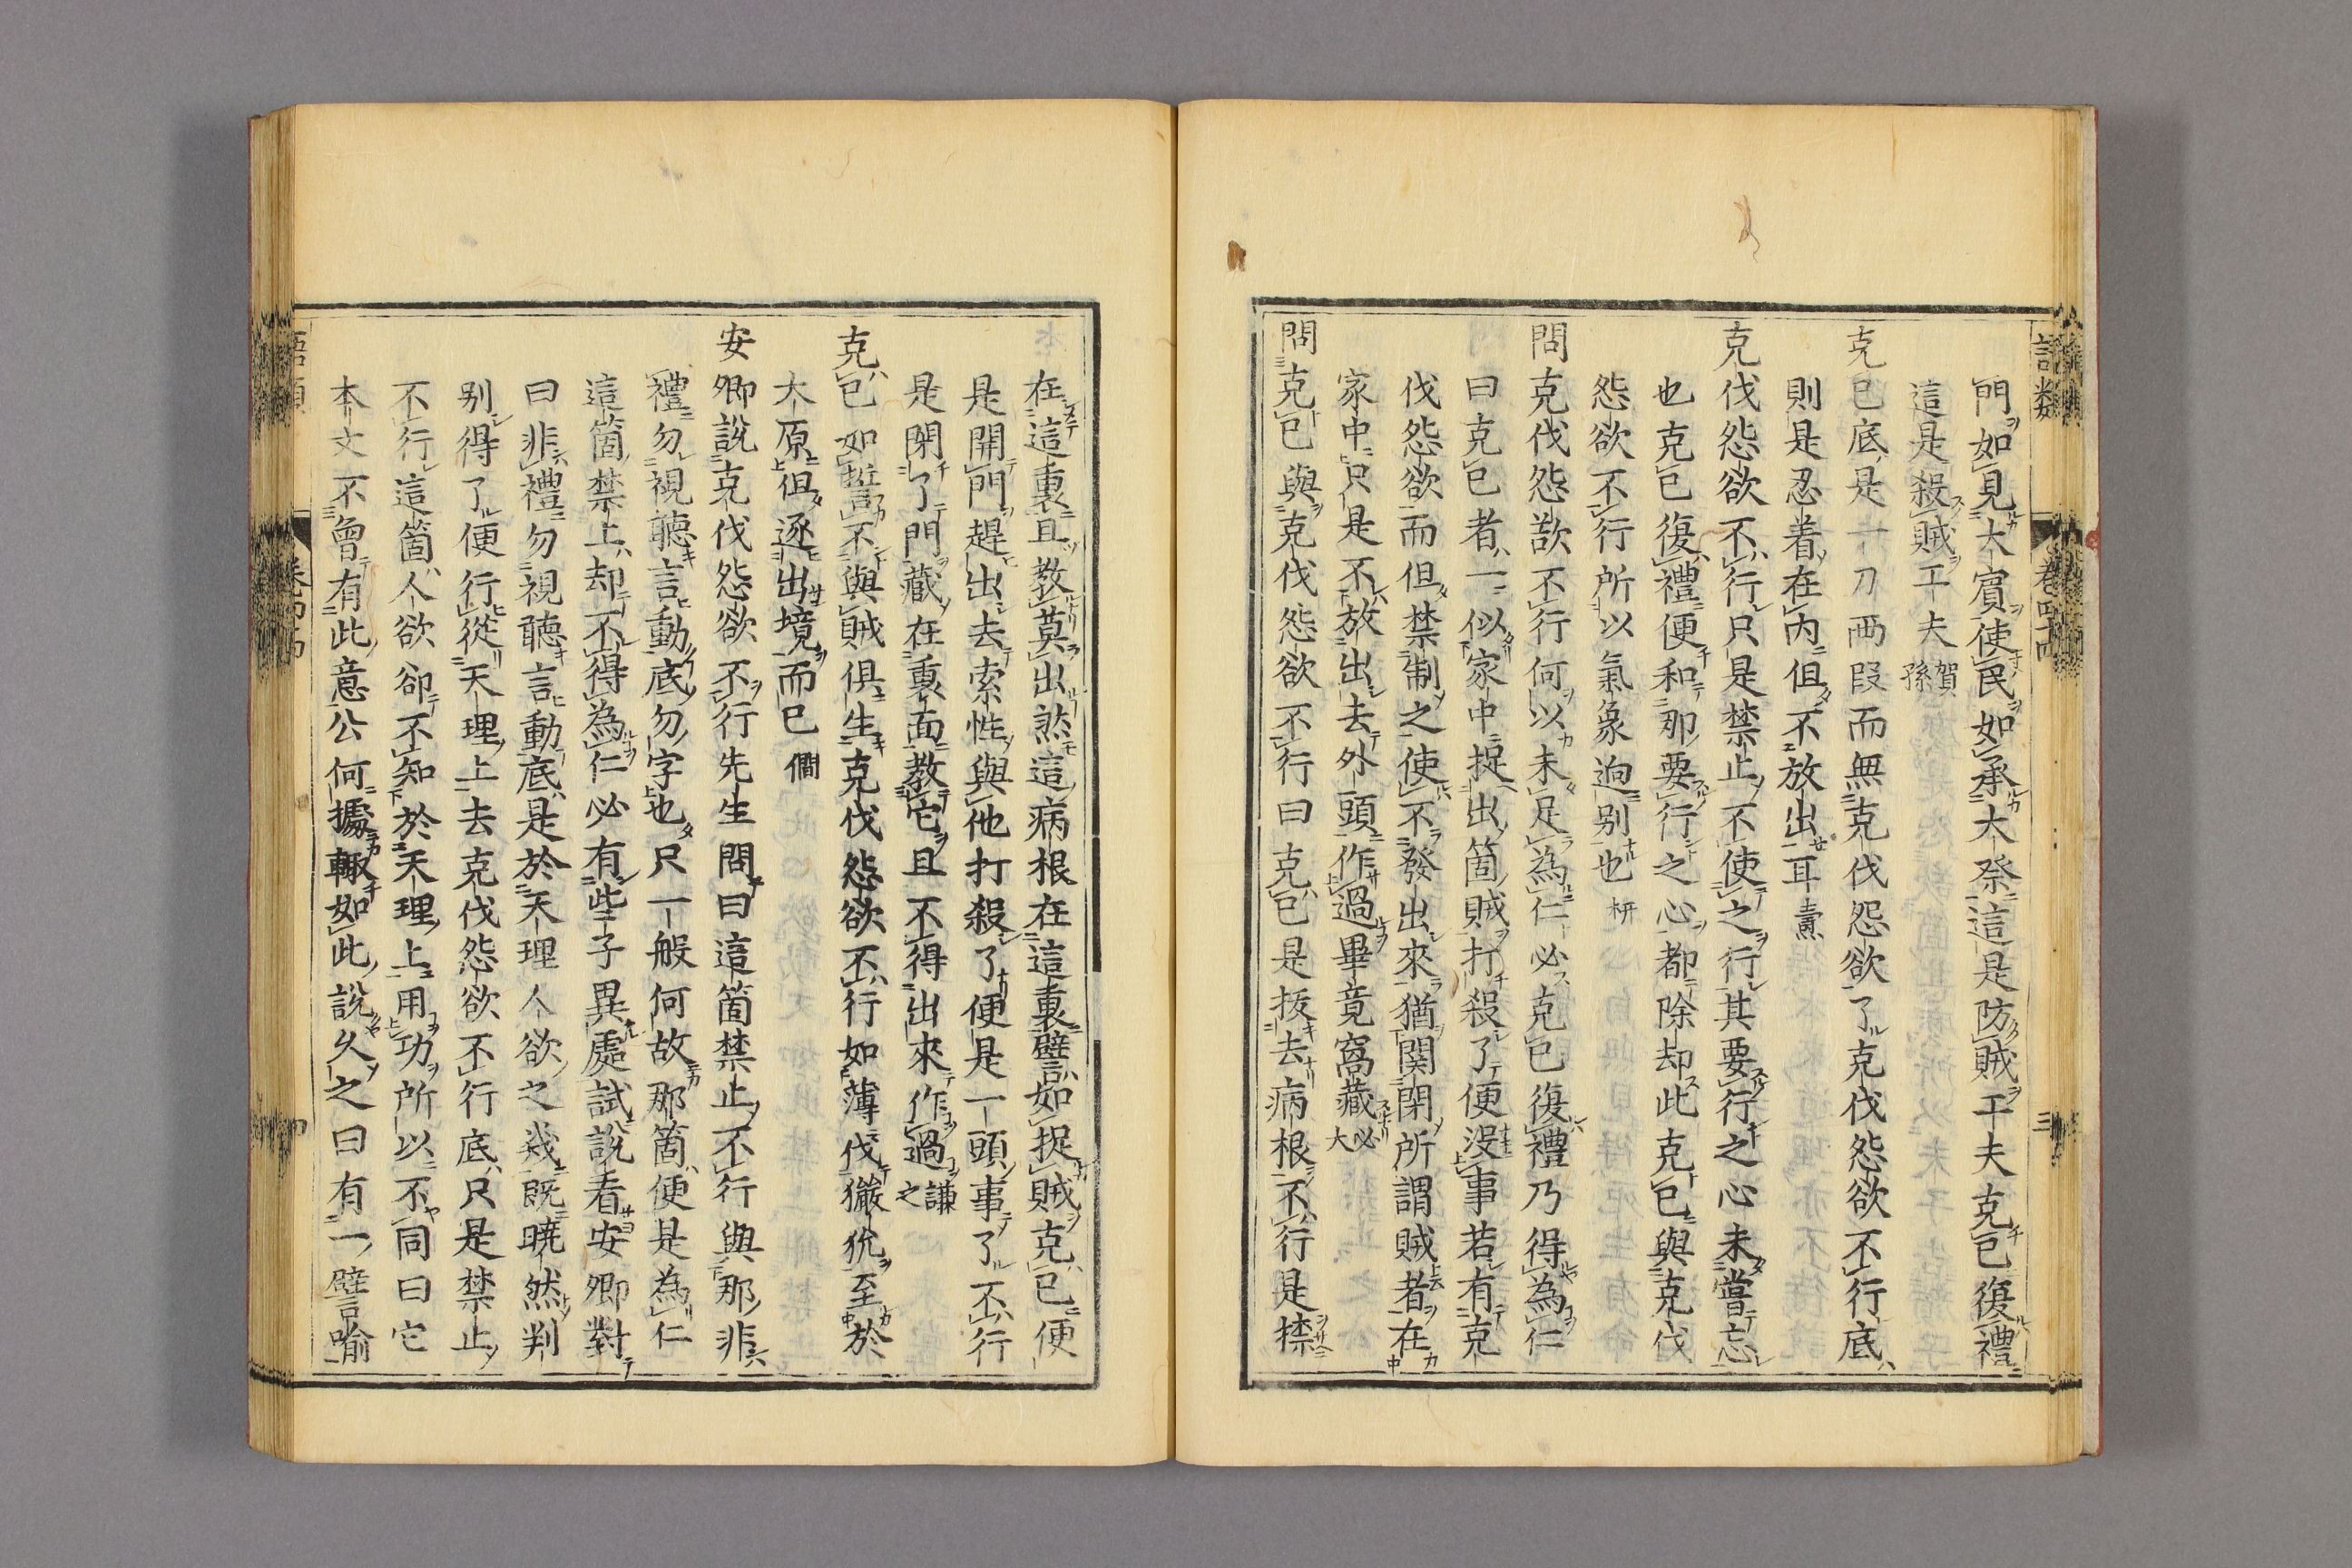 語類 卷四十四 三
門如見大賓使民如承大祭這是防賊工夫克已復禮
這是殺賊工夫 賀孫
克已底是一刀兩段而無克伐怨欲了克伐怨欲不行底
則是忍着在內但不放出耳 燾
克伐怨欲不行只是禁止不使之行其要行之心未嘗忘
也克已復禮便和那要行之心都除却此克已與克伐
怨欲不行所以氣象迥别也 枅
問克伐怨欲不行何以未足為仁必克已復禮乃得為仁
曰克已者一似家中捉出箇賊打殺了便沒事若有克
伐怨欲而但禁制之使不發出來猶関閉所謂賊者在
家中只是不放出去外頭作過畢竟窩藏 必大
問克已與克伐怨欲不行曰克已是拔去病根不行是捺
在這裏且教莫出然這病根在這裏譬如捉賊克已便
是開門趕出去索性與他打殺了便是一頭事了不行
是閉了門藏在裏面教它且不得出來作過 謙之
克已如誓不與賊俱生克伐怨欲不行如薄伐玁狁至於
大原但逐出境而已 僩
安卿說克伐怨欲不行先生問曰這箇禁止不行與那非
禮勿視聽言動底勿字也只一般何故那箇便是為仁
這箇禁止却不得為仁必有些子異處試說看安卿對
曰非禮勿視聽言動底是於天理人欲之幾既曉然判
别得了便行從天理上去克伐怨欲不行底只是禁止
不行這箇人欲卻不知於天理上用功所以不同曰它
本文不曾有此意公何據輙如此說久之曰有一譬喻
語類